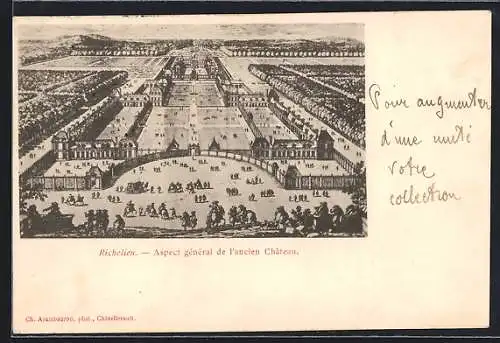 Pour augmenter
d'une unité
votre
collection
Richelieu. — Aspect général de l'ancien Château.
Ch. Arambourou, phot., Châtellerault.